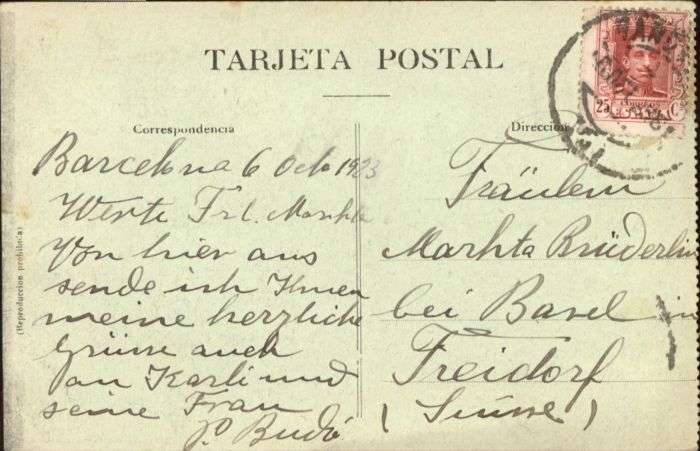 TARJETA POSTAL
Correspondencia
Dirección
25 CORREOS C.
(Reproducción prohibida)
Barcelona 6 Octo 1923
Werte Frl. Markta
Von hier aus
sende ich Ihnen
meine herzliche
Grüsse auch
an Karli und
seine Frau
P. Budó
Fräulein
Markta Brüderlin
bei Basel in
Freidorf
(Suisse)